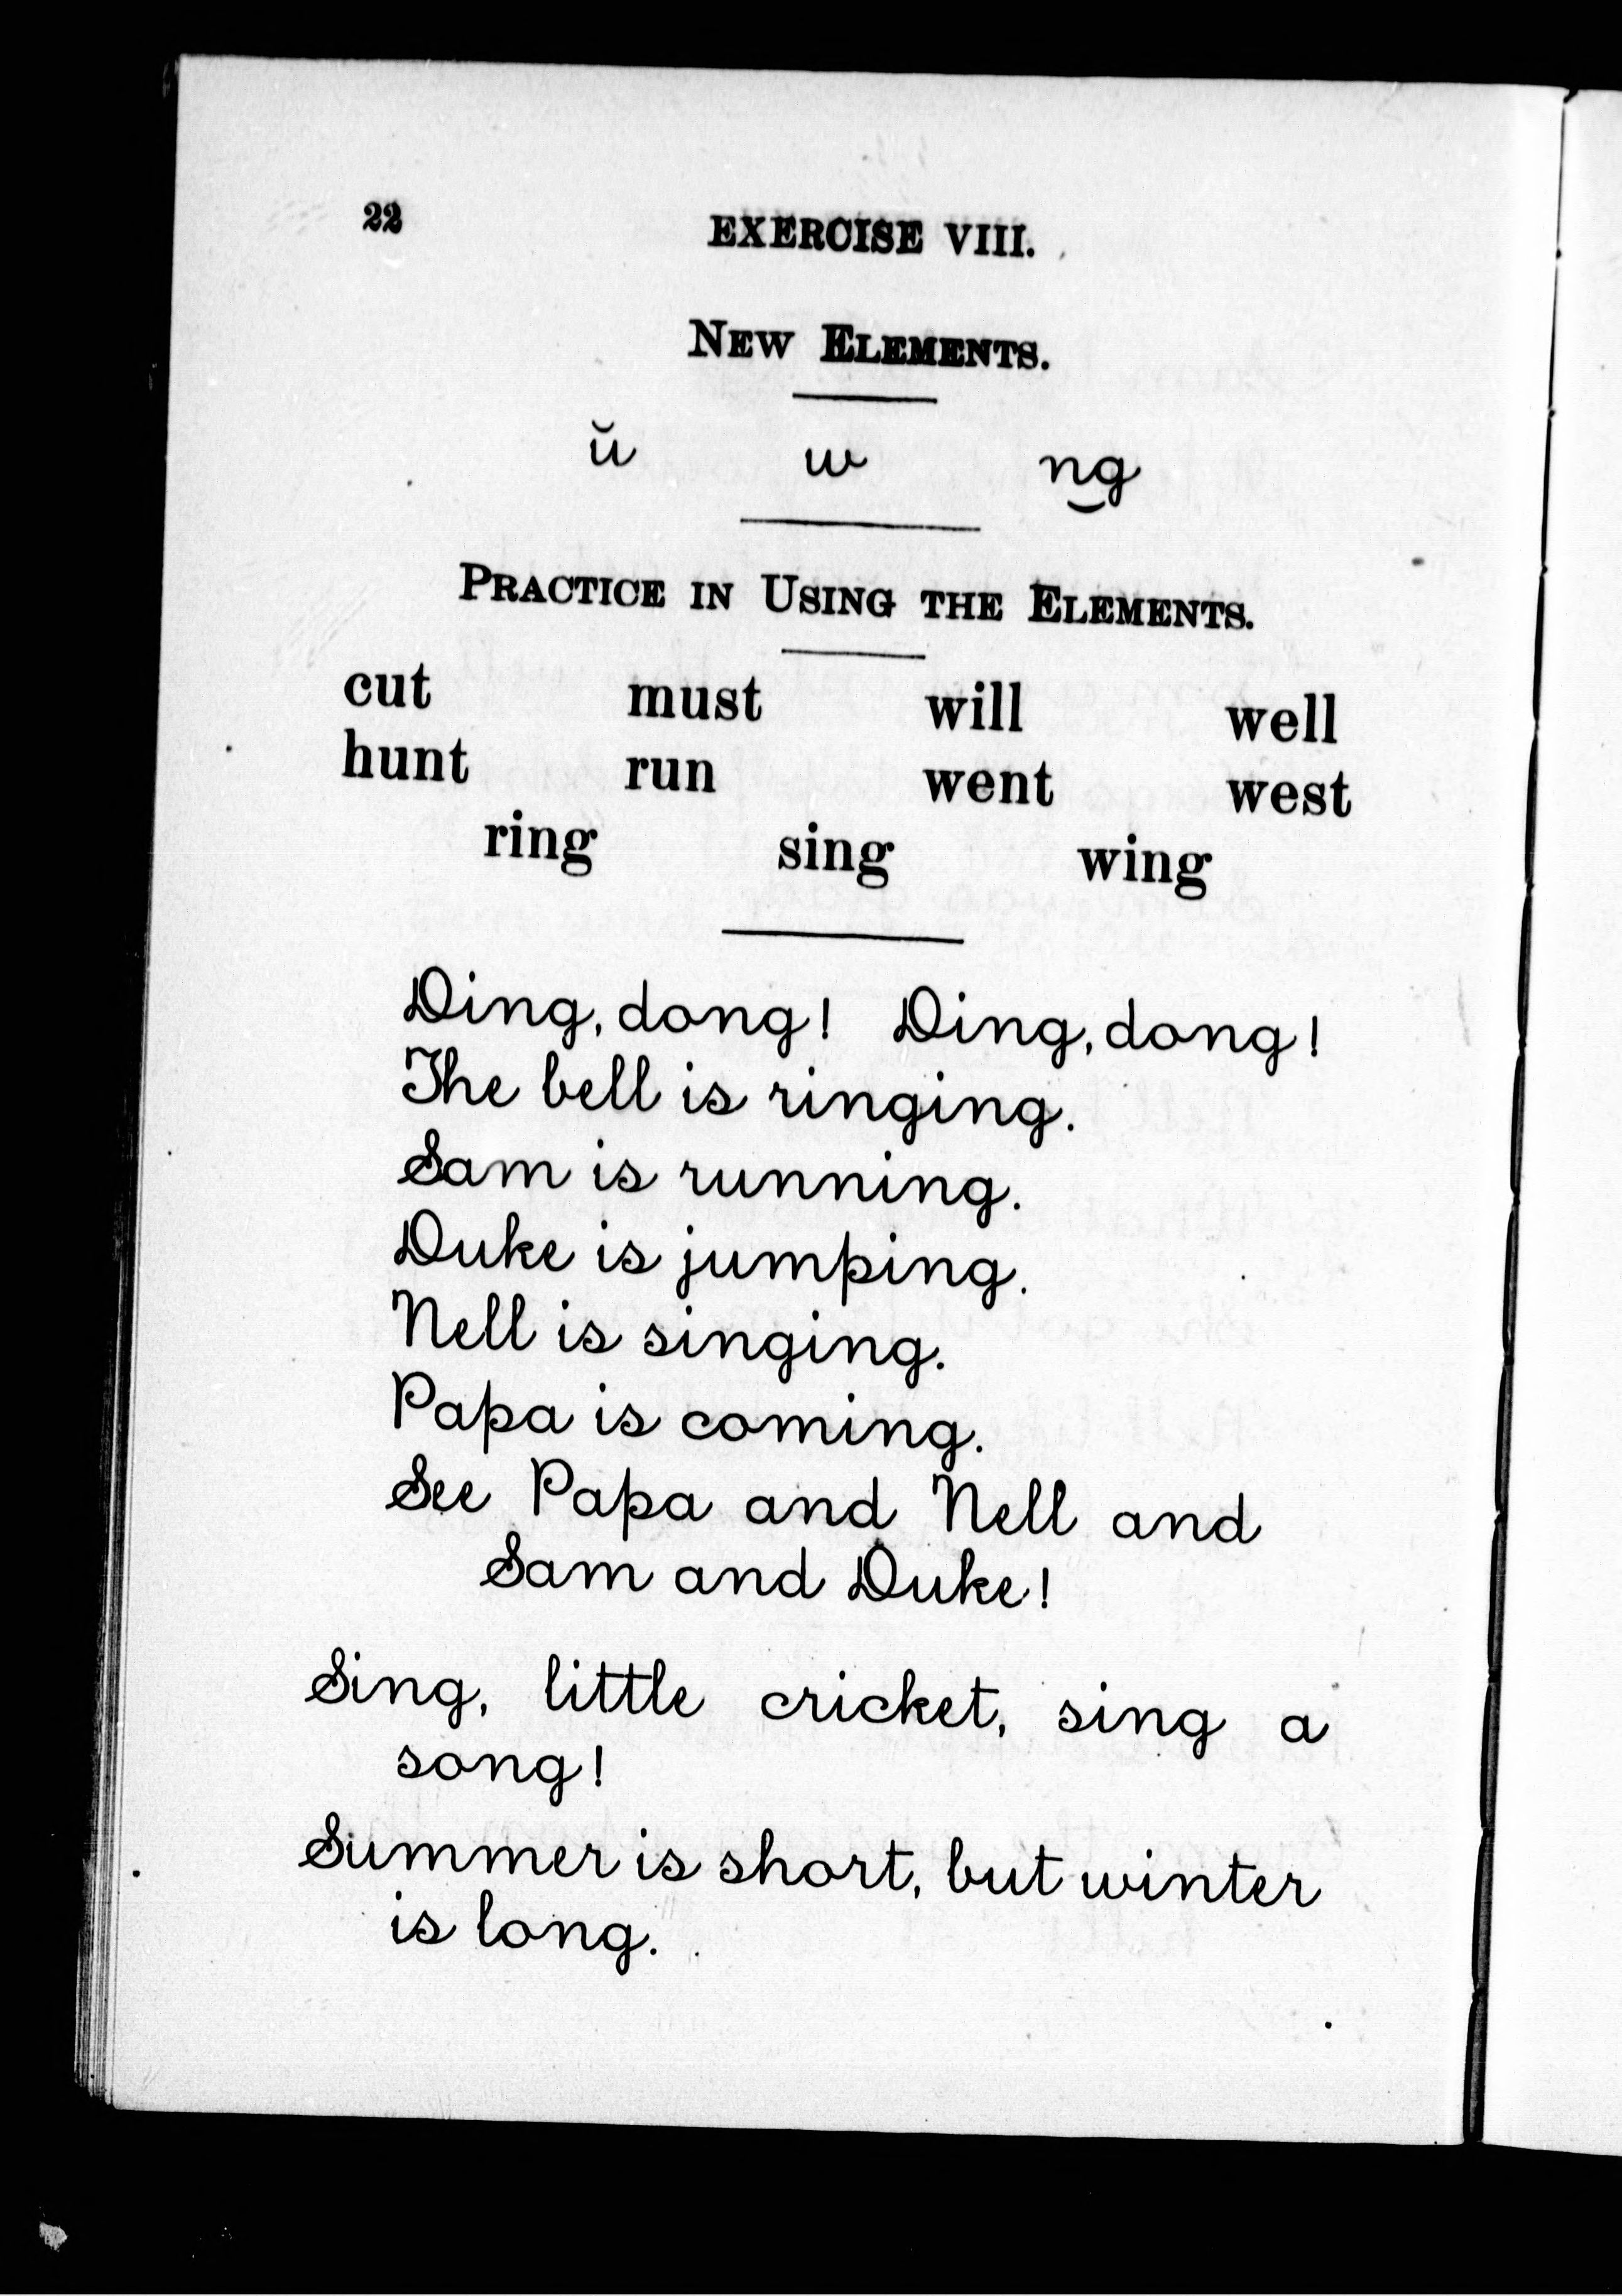 22
EXERCISE VIII.
NEW ELEMENTS.
ŭ w n͜g
PRACTICE IN USING THE ELEMENTS.
cut must will well
hunt run went west
ring sing wing
Ding, dong! Ding, dong!
The bell is ringing.
Sam is running.
Duke is jumping.
Nell is singing.
Papa is coming.
See Papa and Nell and
Sam and Duke!
Sing, little cricket, sing a
song!
Summer is short, but winter
is long.